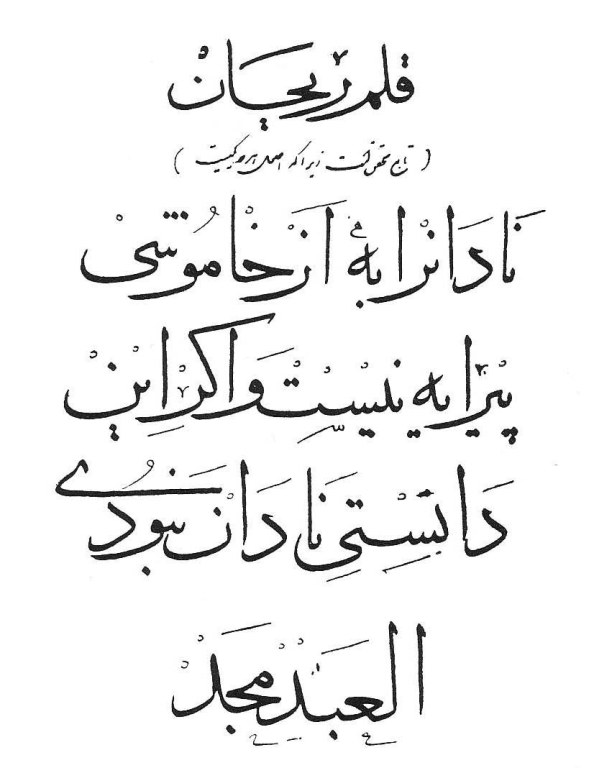 قلم ریحان
(تابع محقق است زیرا که اصل هر دو یکیست)
نادانرا به از خاموشی
پیرایه نیست واکر این
دانستی نادان نبودی
العبد مجد